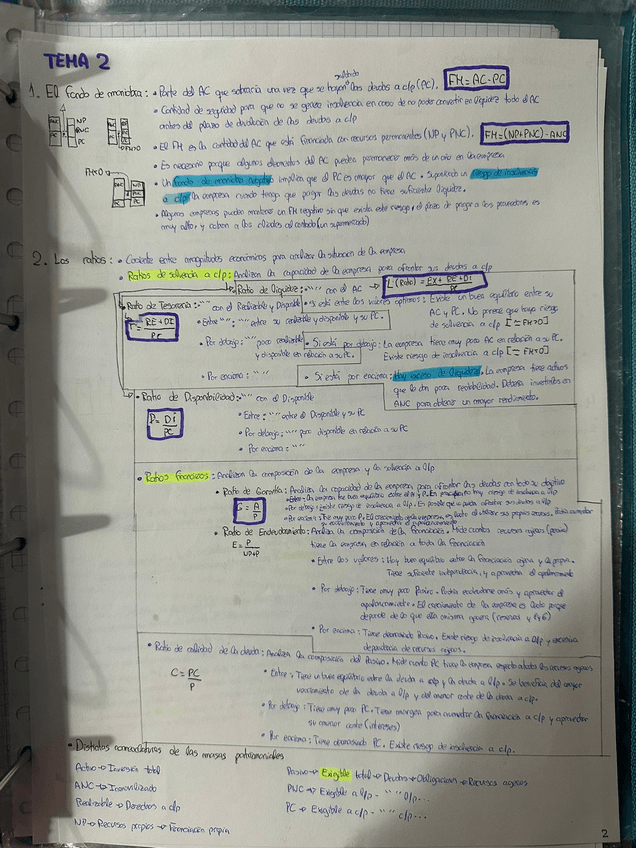 TEMA 2
saldado
1. El fondo de maniobra: • Parte del AC que sobraría una vez que se hayan las deudas a c/p (PC). FM = AC - PC
• Cantidad de seguridad para que no se genere insolvencia en caso de no poder convertir en líquidez todo el AC
antes del plazo de devolución de las deudas a c/p
• El FM es la cantidad del AC que está financiada con recursos permanentes (NP y PNC). FM = (NP+PNC) - ANC
• Es necesario porque algunos elementos del AC pueden permanecer más de un año en la empresa
• Un fondo de maniobra negativo implica que el PC es mayor que el AC. Supondría un riesgo de insolvencia
a c/p la empresa cuando tenga que pagar las deudas no tiene suficiente líquidez.
• Algunas empresas pueden mantener un FM negativo sin que exista este riesgo, el plazo de pago a los proveedores es
muy alto y cobran a los clientes al contado (un supermercado)
NP
PNC
PC
FM>0
FM<0
2. Los ratios: • Cociente entre magnitudes económicas para analizar la situación de la empresa
• Ratios de solvencia a c/p: Analizan la capacidad de la empresa para afrontar sus deudas a c/p
• Ratio de Líquidez: "" con el AC → L (Ratio) = EX + RE + Di / PC
• Ratio de Tesorería: "" con el Realizable y Disponible
T = RE + Di / PC
• Si está entre los valores óptimos: Existe un buen equilibrio entre su
AC y PC. No parece que haya riesgo
de solvencia a c/p [≈ FM>0]
• Entre "": "" entre su realizable y disponible y su PC.
• Por debajo: "" para realizable
y disponible en relación a su PC.
• Si está por debajo: La empresa tiene muy poco AC en relación a su PC.
Existe riesgo de insolvencia a c/p [≈ FM<0]
• Por encima: "" ""
• Si está por encima: Hay exceso de líquidez. La empresa tiene activos
que le dan poca rentabilidad. Debería invertirlos en
ANC para obtener un mayor rendimiento.
• Ratio de Disponibilidad: "" con el Disponible
D = Di / PC
• Entre: "" entre el Disponible y su PC
• Por debajo: "" para disponible en relación a su PC
• Por encima: "" ""
• Ratios financieros: Analizan la composición de la empresa y la solvencia a l/p
• Ratio de Garantía: Analiza la capacidad de la empresa para afrontar las deudas con todo su objetivo
G = A / P
• Ratio de Endeudamiento: Analiza la composición de la financiación. Mide cuantos recursos ajenos (pasivo)
tiene la empresa en relación a toda la financiación
E = P / NP+P
• Entre los valores: Hay buen equilibrio entre la financiación ajena y la propia.
Tiene suficiente independencia, y aprovecha el apalancamiento
• Por debajo: Tiene muy poco Pasivo. Podría endeudarse más y aprovechar el
apalancamiento. El crecimiento de la empresa es lento porque
depende de lo que ella misma genera (reservas y PyG)
• Por encima: Tiene demasiado Pasivo. Existe riesgo de insolvencia a l/p y excesiva
dependencia de recursos ajenos.
• Ratio de calidad de la deuda: Analiza la composición del Pasivo. Mide cuanto PC tiene la empresa respecto a todos los recursos ajenos
C = PC / P
• Entre: Tiene un buen equilibrio entre la deuda a c/p y la deuda a l/p. Se beneficia del mayor
vencimiento de la deuda a l/p y del menor coste de la deuda a c/p.
• Por debajo: Tiene muy poco PC. Tiene margen para aumentar la financiación a c/p y aprovechar
su menor coste (intereses)
• Por encima: Tiene demasiado PC. Existe riesgo de insolvencia a c/p.
• Distintas nomenclaturas de las masas patrimoniales
Activo → Inversión total
ANC → Inmovilizado
Realizable → Derechos a c/p
NP → Recursos propios → Financiación propia
Pasivo → Exigible total → Deudas → Obligaciones → Recursos ajenos
PNC → Exigible a l/p → "" "" l/p...
PC → Exigible a c/p → "" "" c/p...
2